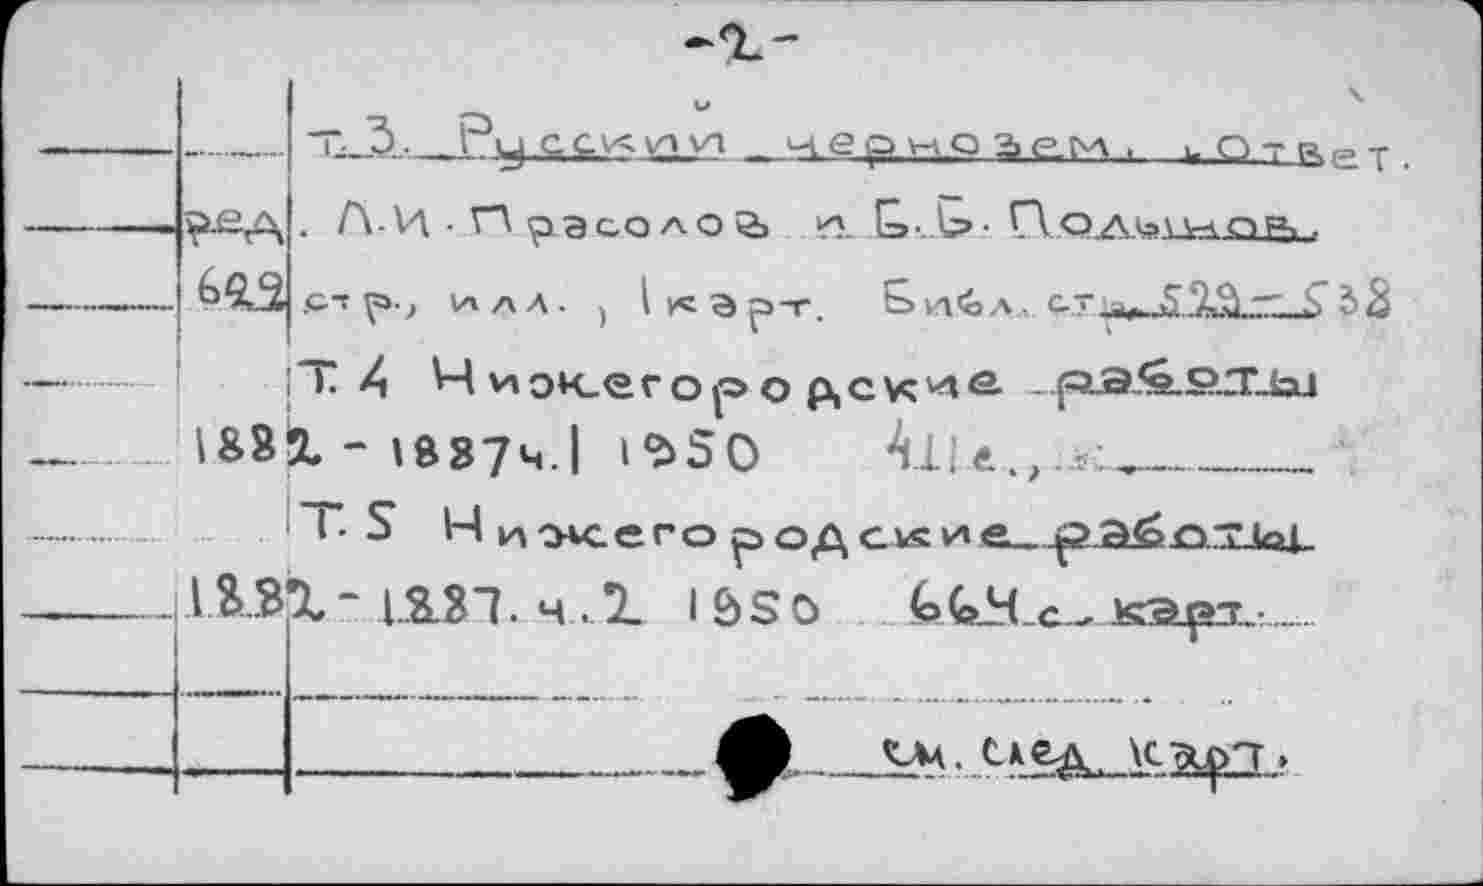 -2-
Т.3. Русский чернозем. . Ответ.
ред. Л.И. Прасолов и Б.Б. Полынов.
622 стр., илл. , 1 карт. Библ. стр. 529-538
Т. 4 Нижегородские работы
1882-1887ч.1 1950 411с.,
Т. 5 Нижегородские работы
1882-1887. ч.2 1950 664 с., карт.
см. след. карт.